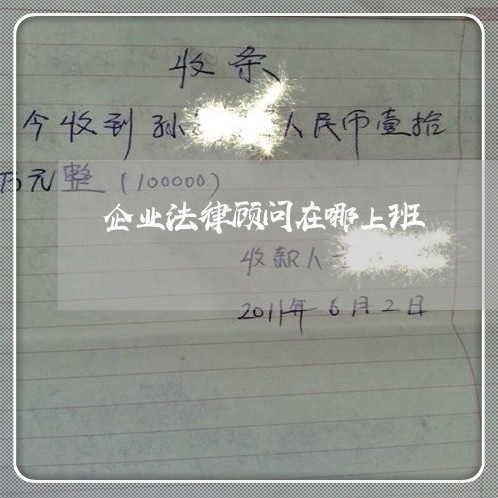 收条
今收到孙 人民币壹拾
万元整(100000)
企业法律顾问在哪上班
收款人
2011年6月2日